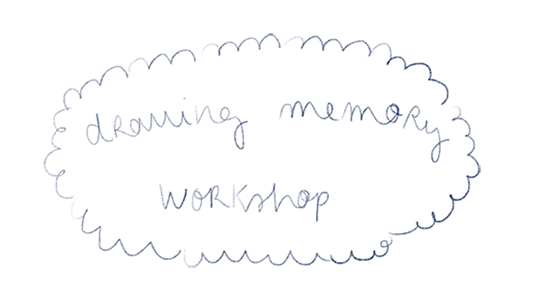 drawing memory
workshop